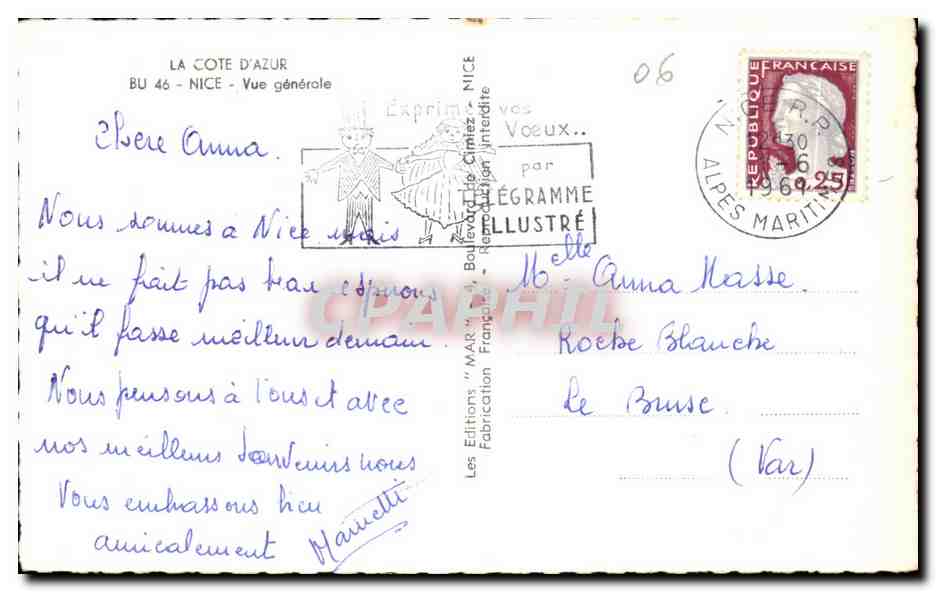 LA COTE D'AZUR
BU 46 - NICE - Vue générale
06
Exprimez vos
Voeux..
par
TÉLÉGRAMME
ILLUSTRÉ
RÉPUBLIQUE FRANÇAISE
0,25
12 30
-6
1961
ALPES MARITIMES
Chère Anna.
Nous sommes à Nice mais
il ne fait pas beau espérons
qu'il fasse meilleur demain.
Nous pensons à Vous et avec
nos meilleurs Souvenirs nous
Vous embrassons bien
amicalement
Les Editions "MAR" - 4, Boulevard de Cimiez - NICE
Fabrication Française - Reproduction Interdite
Melle Anna Masse.
Roche Blanche
Le Brusc.
(Var)
CPAPHIL